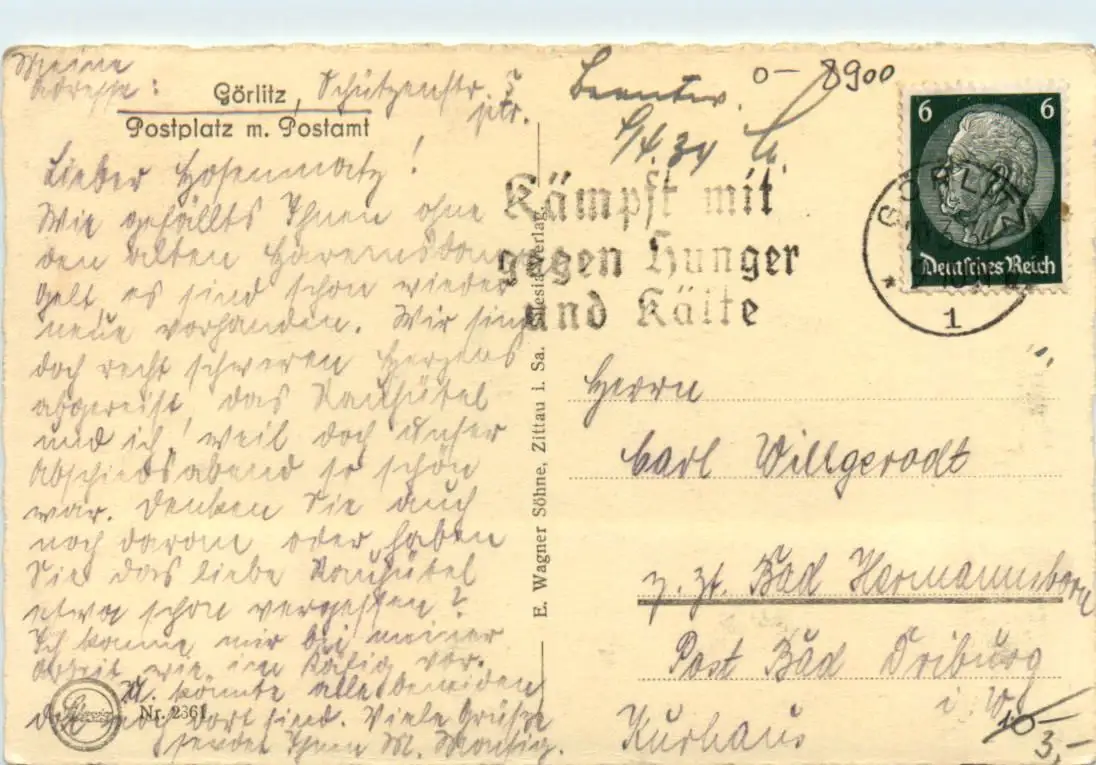 Meine
Adresse:
Görlitz, Schützenstr. 7
ptr.
Postplatz m. Postamt
Lieber Hosenmatz!
Wie gefällts Ihnen ohne
den alten Haremsdamen
gelt, es sind schon wieder
neue vorhanden. Wir sind
doch recht schweren Herzens
abgereist, das
und ich! weil doch unser
Abschiedsabend so schön
war. Denken Sie auch
noch daran oder haben
Sie das liebe
etwa schon vergessen?
Ich komme mir bei meiner
Arbeit wie im Käfig vor.
U. könnte alle beneiden
die noch dort sind. Viele Grüße
sendet Ihnen M.
Nr. 2361
E. Wagner Söhne, Zittau i. Sa. Silesia-Verlag.
Beantw.
6/4.34
0- 8900
Kämpft mit
gegen Hunger
und Kälte
GÖRLITZ
1
6 6
Deutsches Reich
Herrn
Carl Willgerodt
z. Zt. Bad Hermannsborn
Post Bad Driburg
i. W.
Kurhaus
10-
3,-